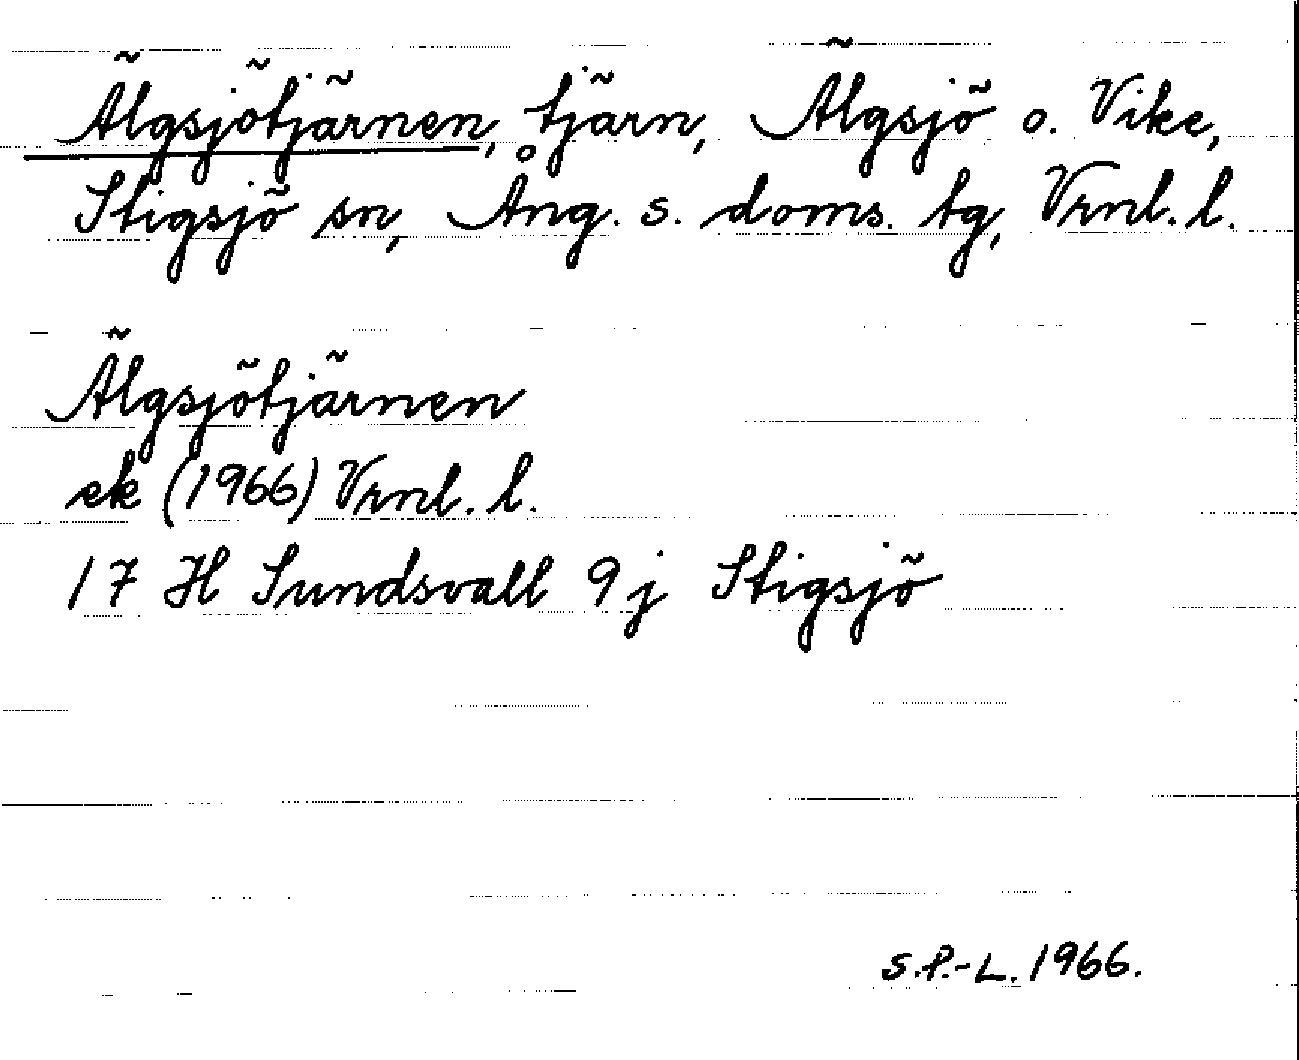 Älgsjötjärnen, tjärn, Älgsjö o. Vike,
Stigsjö sn, Ång. s. doms. tg, Vrnl. l.
Älgsjötjärnen
ek (1966) Vrnl. l.
17 H Sundsvall 9j Stigsjö
S.P.-L. 1966.